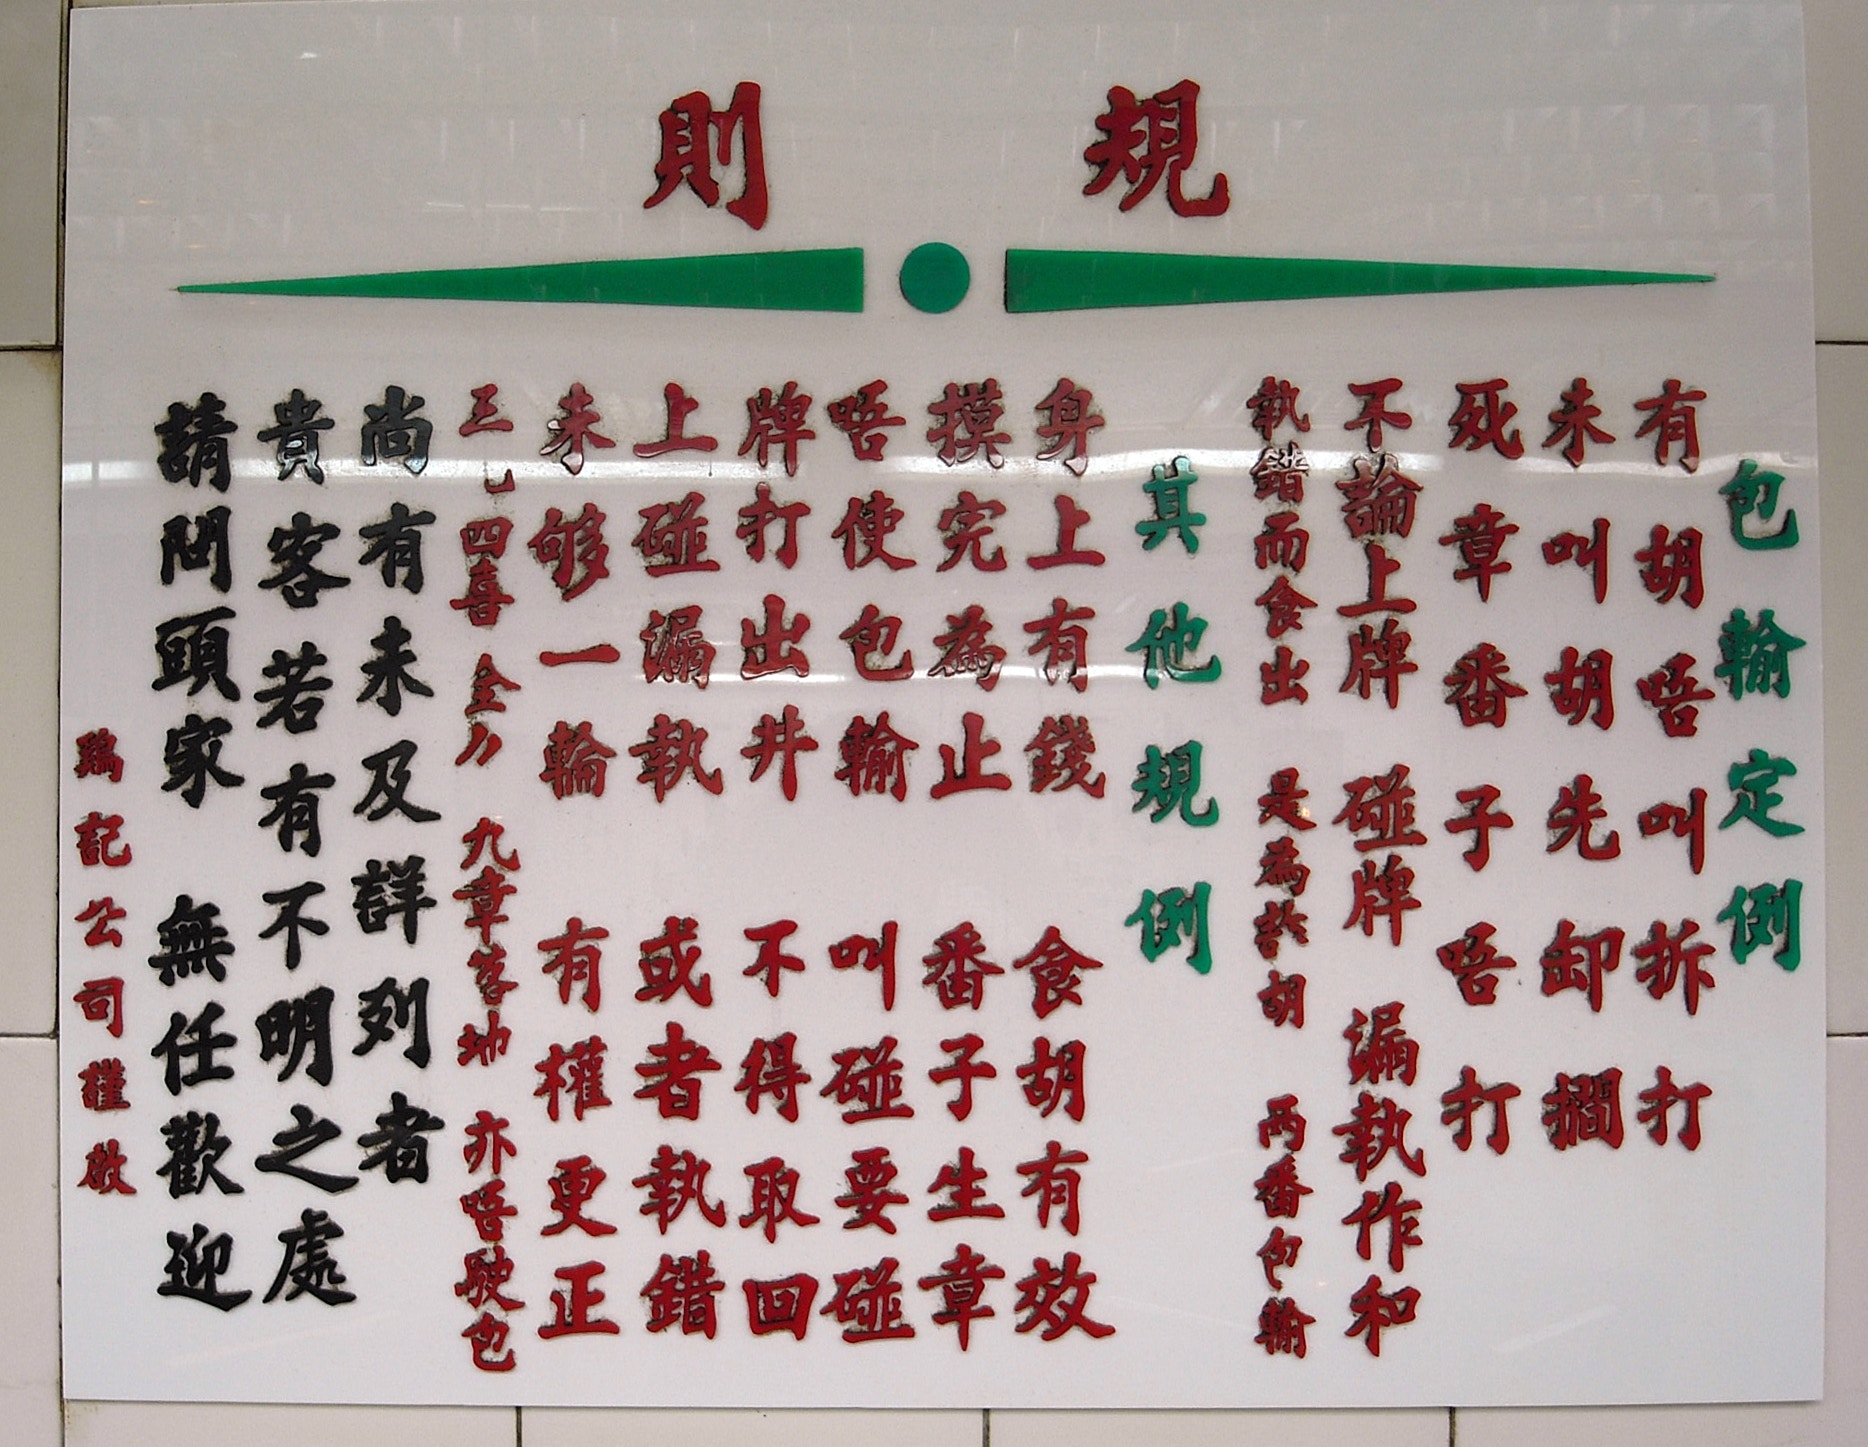 規則
包輸定例
有胡唔叫拆打
未叫胡先卸擱
死章番子唔打
不論上牌 碰牌 漏執作和
執錯而食出 是為詐胡 兩番包輸
其他規例
身上有錢 食胡有效
摸完為止 番子生章
唔使包輸 叫碰要碰
牌打出井 不得取回
上碰漏執 或者執錯
未够一輪 有權更正
四喜 九章落地 亦唔駛包
尚有未及詳列者
貴客若有不明之處
請問頭家 無任歡迎
記公司謹啟